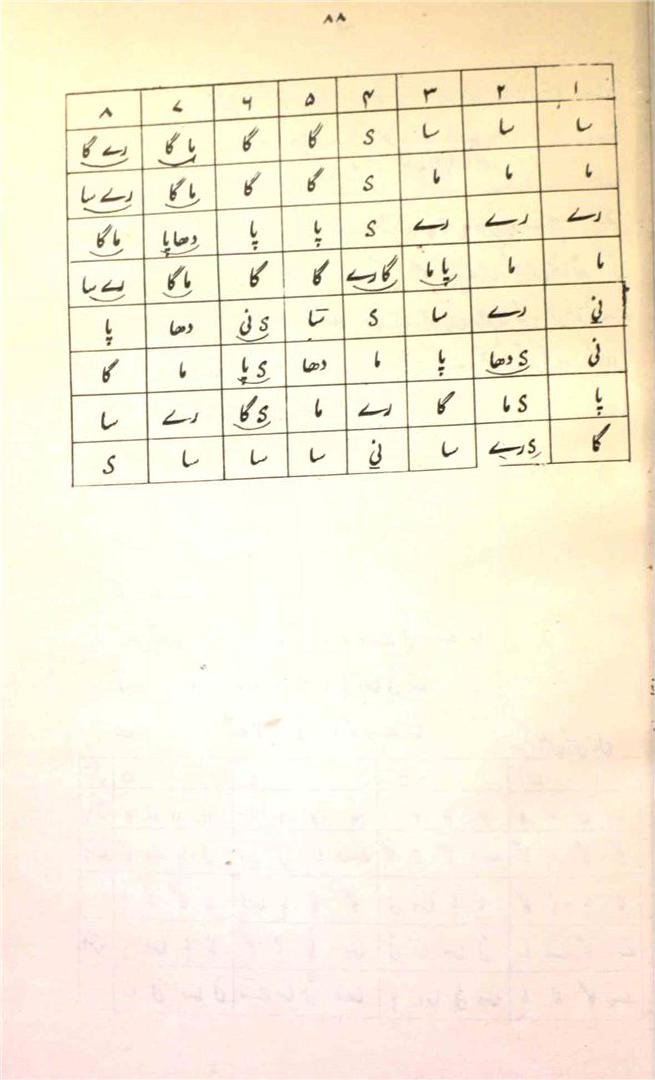 ۸۸
۱ ۲ ۳ ۴ ۵ ۶ ۷ ۸
سا سا سا S گا گا ما گا رے گا
ما ما ما S گا گا ما گا رے سا
رے رے رے S پا پا دھا پا ما گا
ما ما پا ما گا رے گا گا ما گا رے سا
نی رے سا S سا S نی دھا پا
نی S دھا پا ما دھا S پا ما گا
پا S ما گا رے ما S گا رے سا
گا S رے سا نی سا سا سا S